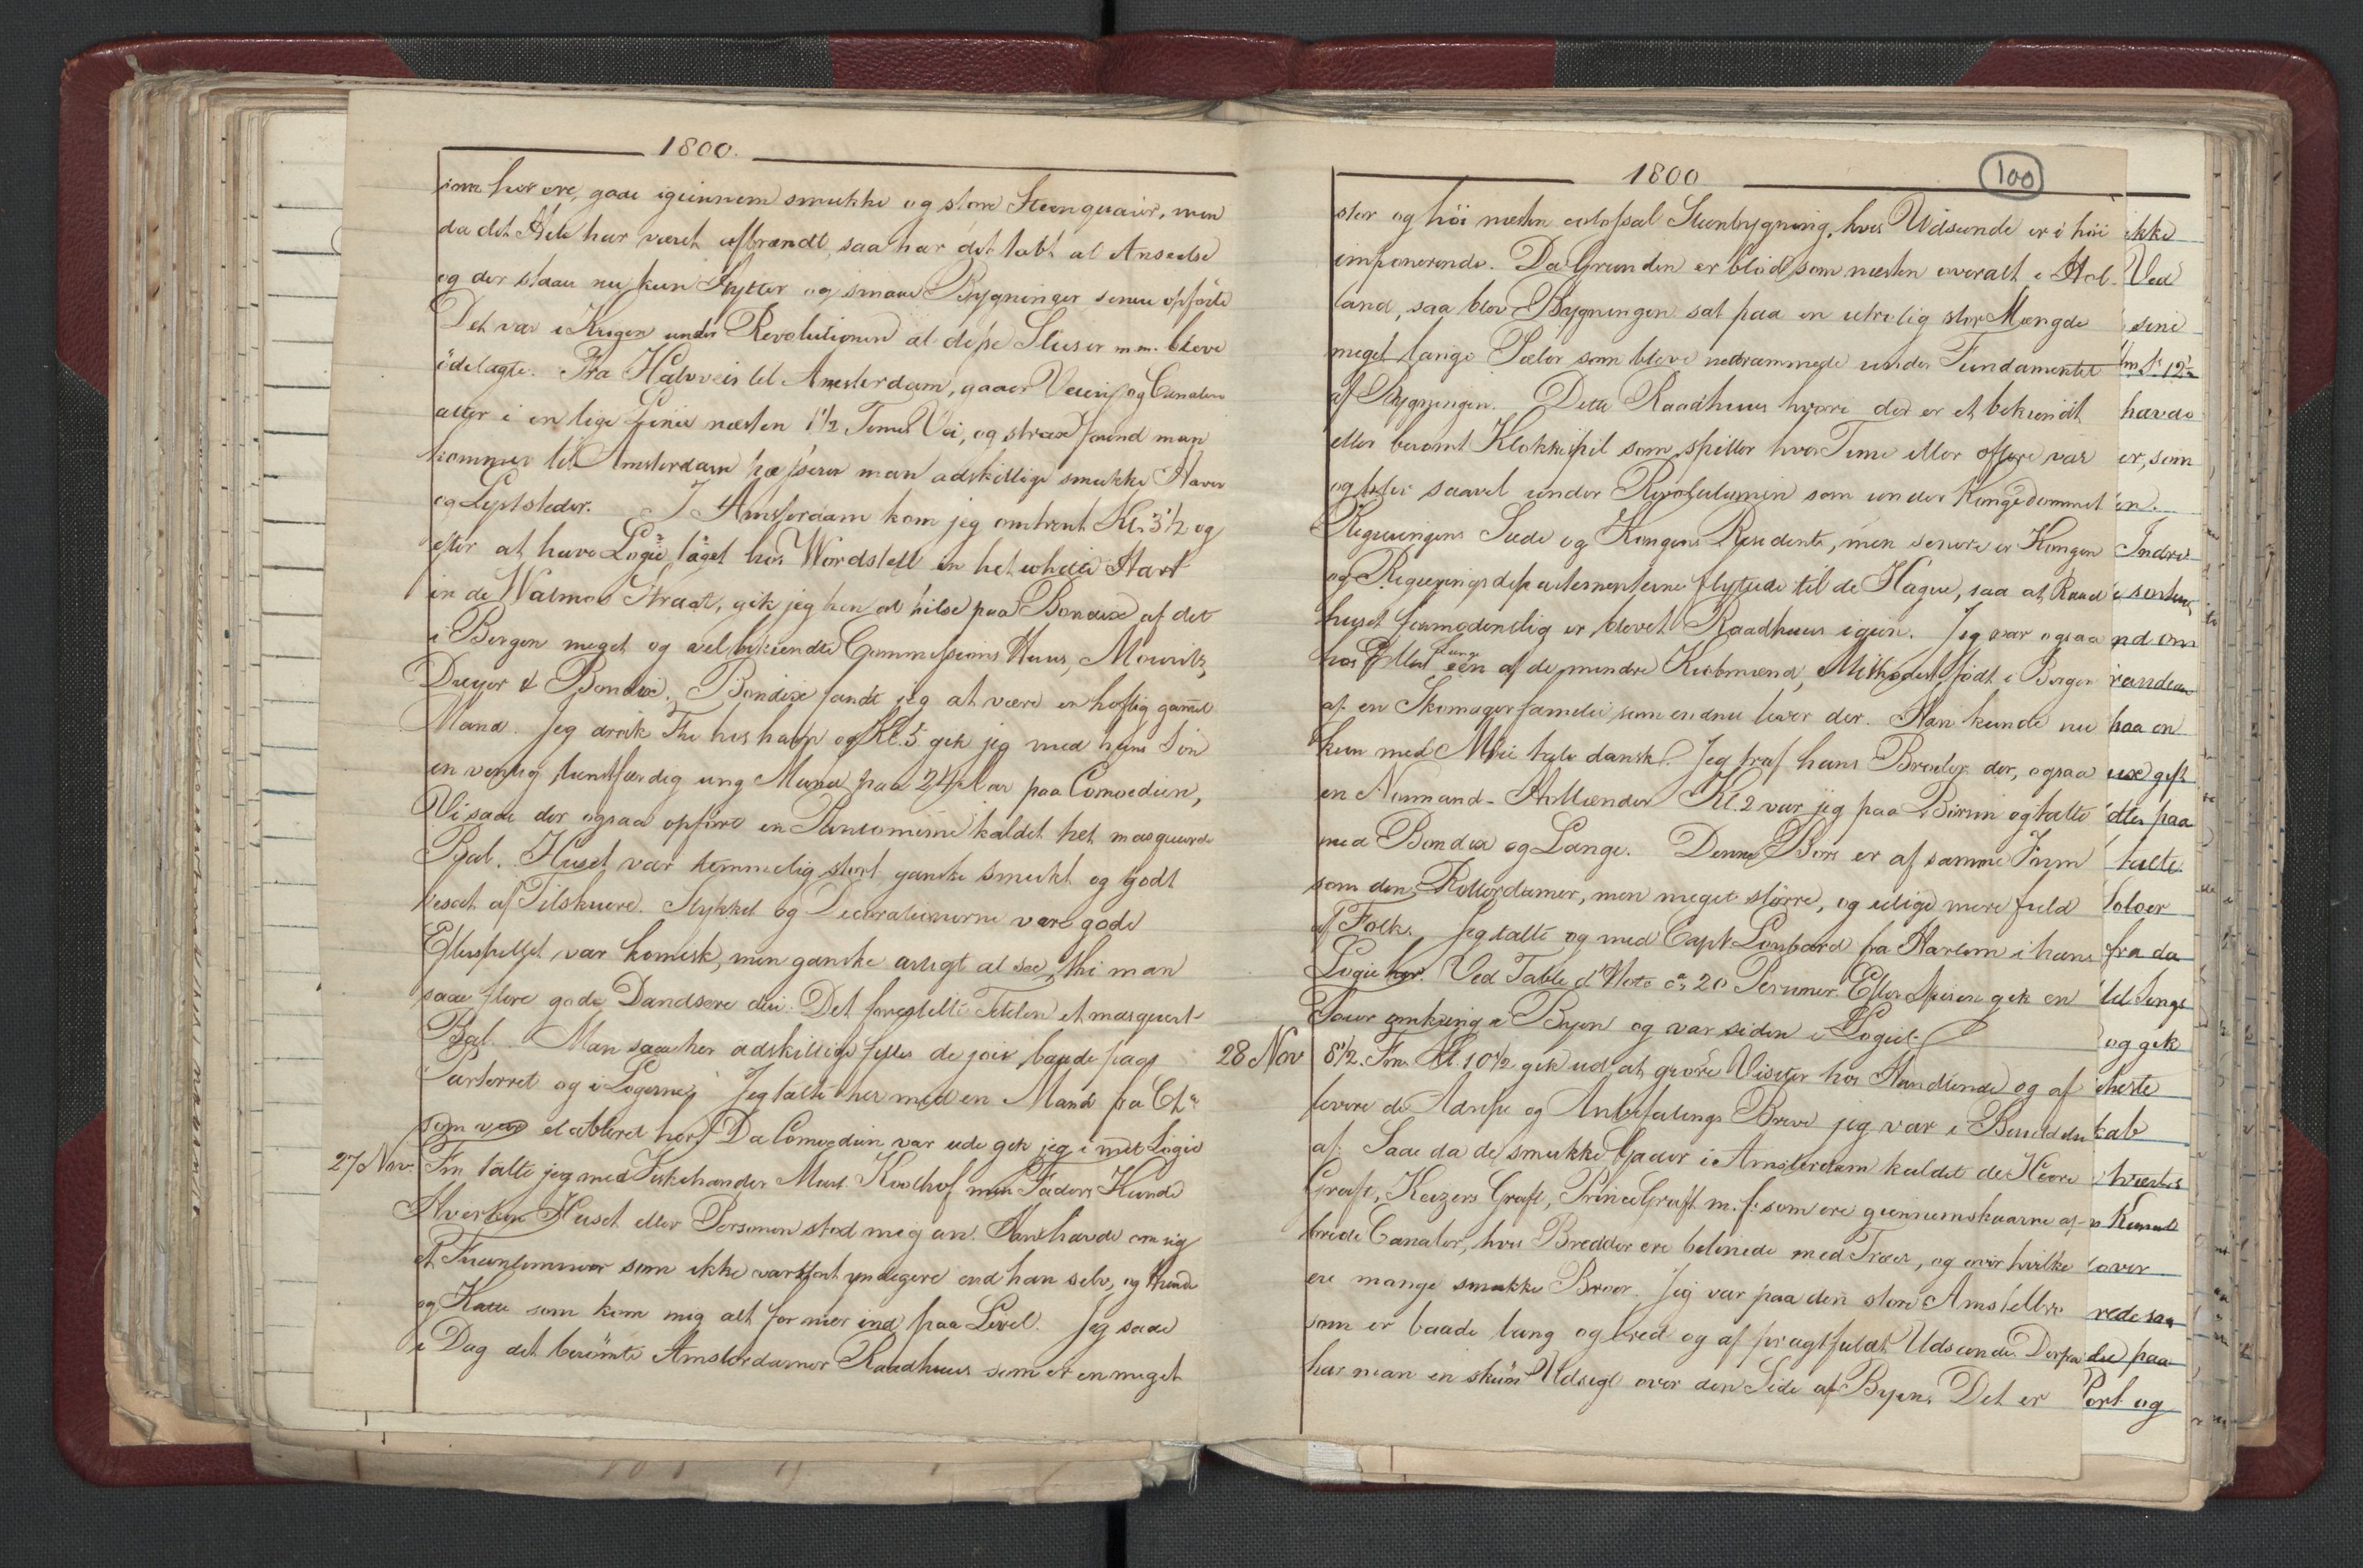 1800.
som her ere, gaae igiennem smukke og store Steenquaier, men
da det Hele har været afbrændt, saa har det tabt al Anseelse
og der staae nu kun Hytter og smaae Bygninger senere opförte
Det var i Krigen under Revolutionen at disse Sluser m.m. bleve
ödelagte. Fra Halvveis til Amsterdam, gaaer Veien og Canalen
atter i en lige Linie næsten 1½ Times Vei, og strax forend man
kommer til Amsterdam passerer man adskillige smukke Haver
og Lyststeder. I Amsterdam kom jeg omtrent Kl. 3½ og
efter at have Logie taget hos Wordstell in het white Hart
in de Warmoe Straat, gik jeg hen at hilse paa Bondix af det
i Bergen meget og vel bekiendte Commissions Huus, Mouritz,
Dreyer & Bondix. Bondix fandt jeg at være en höflig gamel
Mand. Jeg drak The hos ham og Kl. 5 gik jeg med hans Sön
en venlig, tienstfærdig ung Mand paa 24 Aar paa Comoedien,
Vi saae der ogsaa opföre en Pantomime kaldet het masqueerde
Bal. Huset var temmelig stort ganske smukt og godt
besat af Tilskuere. Stykket og Decorationerne vare gode
Efterspillet var komisk, men ganske artigt at see, thi man
saae flere gode Dandsere deri. Det forestillte Titelen et masqueret
Bal. Man saae her adskillige filles de joie baade paa
Parterret og i Logerne. Jeg talte her med en Mand fra Chr
som var etableret her. Da Comoedien var ude gik jeg i mit Logie
27 Nov. Fm talte jeg med Fiskehandler Mart. Koolhof min Faders Kunde
Hverken Huset eller Personen stod mig an. Han havde om sig
et Fruentimmer som ikke var stort yndigere end han selv, og Hunde
og Katte som kom mig alt for nær ind paa Livet. Jeg saae
i Dag det berömte Amsterdamer Raadhuus som er en meget
1800
100
stor og höi næsten colossal Steenbygning, hvis Udseende er i höi
imponerende. Da Grunden er blöd som næsten overalt i Hol-
land, saa blev Bygningen sat paa en utrolig stor Mængde
meget lange Pæler som bleve nedrammede under Fundamentet
af Bygningen. Dette Raadhuus hvorre der er et bekiendt
eller berömt Klokkespil som spiller hver Time eller oftere var
og saavel under Revolutionen som under Kongedömmet
Regieringens Sæde og Kongens Residents, men senere er Kongen
og Regieringsdepartementerne flyttede til de Hague, saa at Raad
huset formodendtlig er blevet Raadhuus igien. Jeg var ogsaa
hos Lange een af de mindre Kiöbmænd, födt i Bergen
af en Skomagerfamilie som endnu lever der. Han kunde nu
kun med Möie tale dansk. Jeg traf hans Broder der, ogsaa
en Normand-Hollænder Kl. 2 var jeg paa Börsen og talte
med Bondix og Lange. Denne Börs er af samme Form
som den Rotterdamer, men meget större, og ulige mere fuld
af Folk. Jeg talte og med Capt Lombard fra Harlem i hans
Logie her. Ved Table d'Hote ca 20 Personer. Efter Spisen gik en
Tour omkring i Byen og var siden i Logiet.
28 Nov 8½. Fm. Kl. 10½ gik ud, at giöre Visiter hos Handlende og af
levere de Adresse og Anbefalings Breve jeg var i Besiddelse
af. Saae da de smukke Gader i Amsterdam kaldet de Heere
Graft, Keizers Graft, Prince Graft m. fl. som ere giennemskaarne af
brede Canaler, hvis Bredder ere belinede med Træer, og over hvilke
ere mange smukke Broer. Jeg var paa den store Amstelbro
som er baade lang og bred og af pragtfuldt Udseende. Derfra
har man en skiön Udsigt over den Side af Byen. Det er
ikke
Ved
sine
havde
er, som
en.
Indre
nd om
paa en
gift
dtes paa
talte
fra da
til Senge
og gik
cherte
kab
over
rede saa
paa
Port og